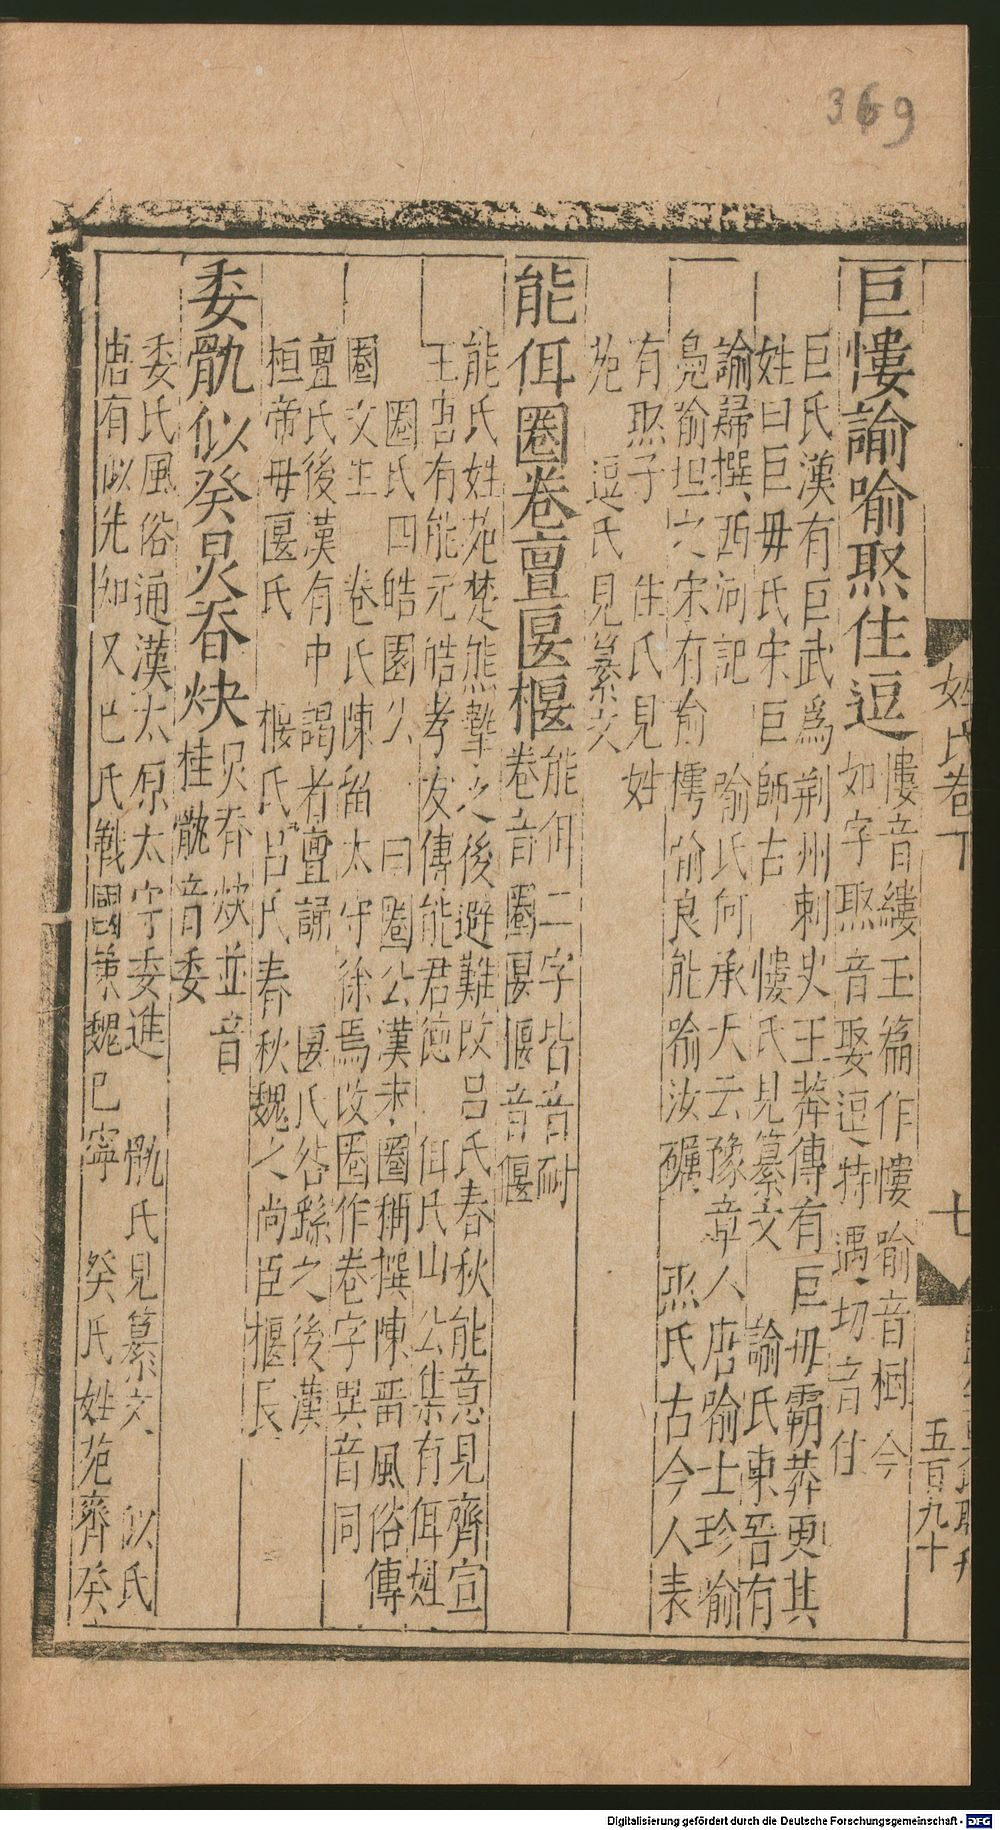 369
姓氏卷下
七
五百九十
巨慺諭喻聚住逗慺音縷玉篇作慺喻音樹今
如字聚音娶逗特遇切音住
巨氏漢有巨武爲荆州刺史王莽傳有巨毋霸莽更其
姓曰巨毋氏宋巨師古 慺氏見纂文 諭氏東晉有
諭歸撰西河記 喻氏何承天云豫章人唐喻士珍喻
鳧喻坦之宋有喻樗喻良能喻汝礪 聚氏古今人表
有聚子 住氏見姓
苑 逗氏見纂文
能佴圈卷亶匽椻能佴二字皆音耐
卷音圈匽偃音偃
能氏姓苑楚熊摯之後避難改吕氏春秋能意見齊宣
王唐有能元皓孝友傳能君德 佴氏山公集有佴姓
圈氏四皓園公 曰圈公漢末圈稱撰陳畱風俗傳
圈文生 卷氏陳留太守徐焉改圈作卷字異音同
亶氏後漢有中謁者亶誦 匽氏咎繇之後漢
桓帝毋匽氏 椻氏吕氏春秋魏之尚臣椻長
委骩似癸炅吞炔炅吞炔並音
桂骩音委
委氏風俗通漢太原太守委進 骩氏見纂文 似氏
唐有似先知又巳氏戰國策魏巳寧 癸氏姓苑齊癸
Digitalisierung gefördert durch die Deutsche Forschungsgemeinschaft - DFG